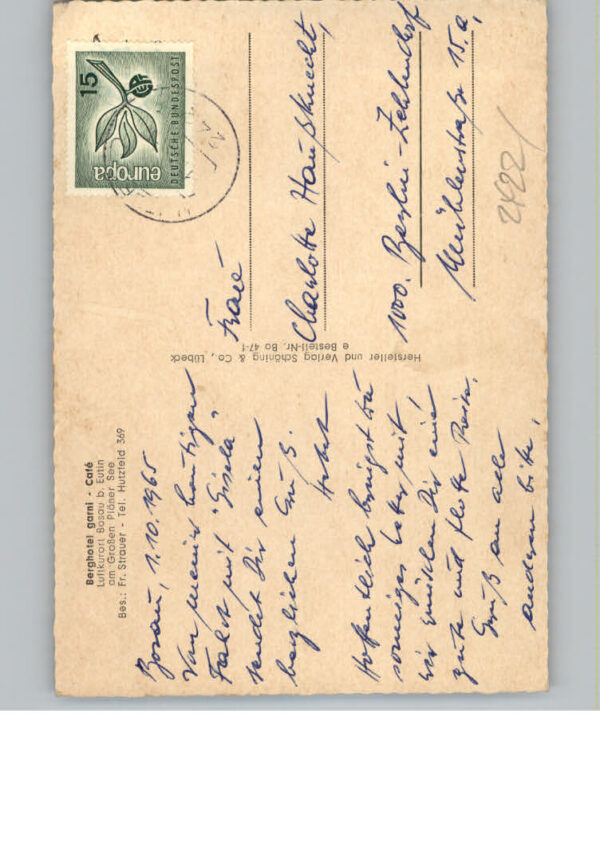 Berghotel garni - Café
Luftkurort Bosau b. Eutin
am Großen Plöner See
Bes.: Fr. Strauer - Tel. Hutzfeld 369
Bosau, 1.10.1965
Von meiner heutigen
Fahrt mit "Gisela"
sendet Dir einen
herzlichen Gruß.
Hofentlich bringst Du
sonniges Wetter mit
wir wünschen Dir eine
gute und flotte Reise.
Gruß an alle
anderen
Hersteller und Verlag Schöning & Co., Lübeck
e Bestell-Nr. Bo 47-1
15
DEUTSCHE BUNDESPOST
europa
CEPT
Frau
Charlotte Haußknecht,
1000. Berlin-Zehlendorf
Mühlenstraße 15.a,
2422